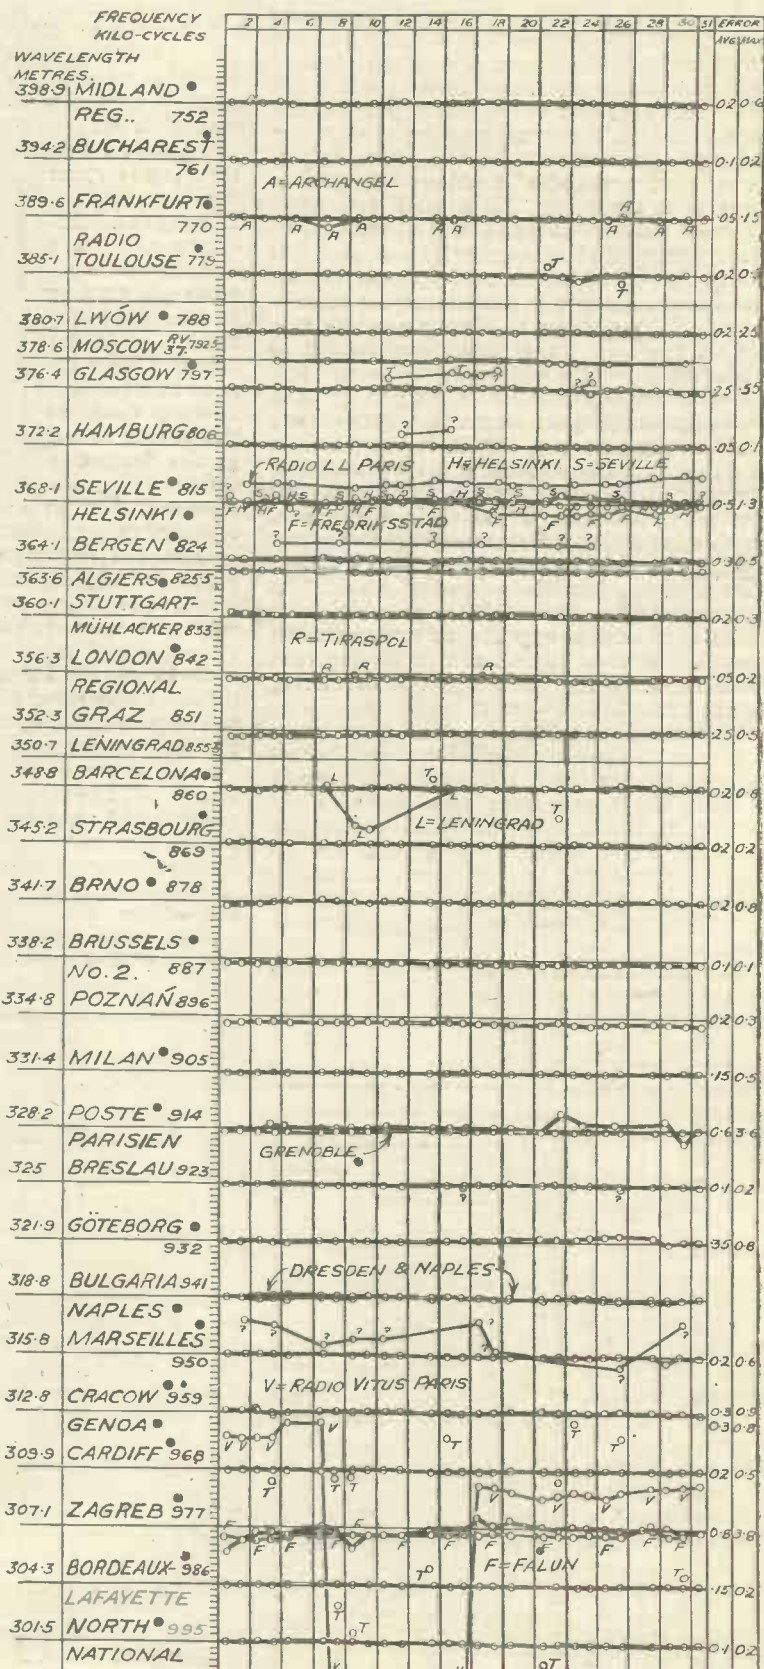 FREQUENCY
KILO-CYCLES
2 4 6 8 10 12 14 16 18 20 22 24 26 28 30 31 ERROR
AVG MAX
WAVELENGTH
METRES.
398·9 MIDLAND
REG.. 752
0·2 0·6
394·2 BUCHAREST
761
0·1 0·2
A=ARCHANGEL
389·6 FRANKFURT
770
A A A A A A A A A A
·05 ·15
RADIO
385·1 TOULOUSE 779
T
T
380·7 LWÓW 788
378·6 MOSCOW RV 37. 792·5
376·4 GLASGOW 797
T T T ? ?
·25 ·55
372·2 HAMBURG 806
? ?
·05 0·1
RADIO LL PARIS H=HELSINKI S=SEVILLE
368·1 SEVILLE 815
HELSINKI
F=FREDRIKSSTAD
364·1 BERGEN 824
? ? ? ? ? ?
0·3 0·5
363·6 ALGIERS 825·5
360·1 STUTTGART-
MÜHLACKER 833
0·2 0·3
R=TIRASPOL
356·3 LONDON 842
REGIONAL
R R R
·05 0·2
352·3 GRAZ 851
·25 0·5
350·7 LENINGRAD 855·5
348·8 BARCELONA
860
L T L
0·2 0·8
L L=LENINGRAD T
345·2 STRASBOURG
869
0·2 0·2
341·7 BRNO 878
0·2 0·8
338·2 BRUSSELS
NO. 2. 887
0·1 0·1
334·8 POZNAŃ 896
0·2 0·3
331·4 MILAN 905
·15 0·5
328·2 POSTE 914
PARISIEN
0·6 3·6
GRENOBLE
325 BRESLAU 923
? ?
0·1 0·2
321·9 GÖTEBORG
932
·35 0·8
318·8 BULGARIA 941
DRESDEN & NAPLES
NAPLES
315·8 MARSEILLES
950
? ? ? ? ? ? ? ? ?
0·2 0·6
V=RADIO VITUS PARIS
312·8 CRACOW 959
0·3 0·9
GENOA
0·3 0·8
V V V V T T T
309·9 CARDIFF 968
T T T T
0·2 0·5
307·1 ZAGREB 977
V V V V V V
0·8 3·8
F F F F F F F F F F F F
304·3 BORDEAUX- 986
LAFAYETTE
T F=FALUN T
·15 0·2
301·5 NORTH 995
NATIONAL
T T
0·1 0·2
V V T